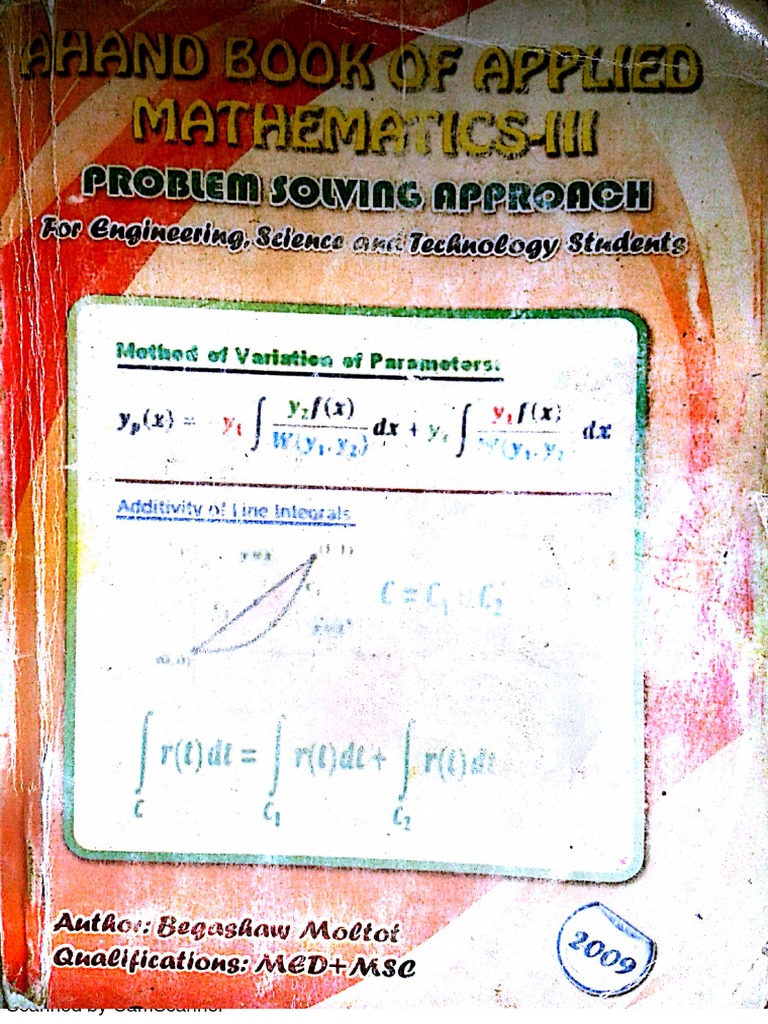 AHAND BOOK OF APPLIED
MATHEMATICS-III
PROBLEM SOLVING APPROACH
For Engineering, Science and Technology Students
Method of Variation of Parameters:
yₚ(x) = -y₁ ∫ y₂f(x)/W(y₁,y₂) dx + y₂ ∫ y₁f(x)/W(y₁,y₂) dx
Additivity of Line Integrals
y=x
(1,1)
C = C₁ C₂
(0,0)
∫ r(t)dt = ∫ r(t)dt + ∫ r(t)dt
C C₁ C₂
Author: Begashaw Moltot
Qualifications: MED+MSC
2009
Scanned by CamScanner